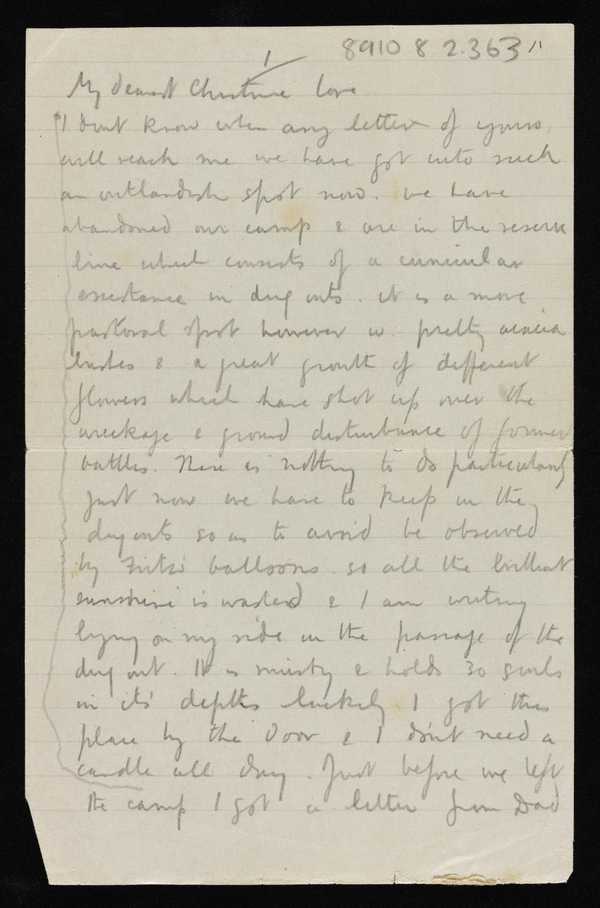 8910 8 2.363 11
1
My dearest Christine love
I dont know when any letter of yours,
will reach me we have got into such
an outlandish spot now. we have
abandoned our camp & are in the reserve
line which consists of a cunicular
existance in dug outs. it is a more
pastoral spot however w. pretty acacia
bushes & a great growth of different
flowers which have shot up over the
wreckage & ground disturbance of former
battles. There is nothing to do particularly
just now we have to keep in the
dug outs so as to avoid be observed
by Fritz' balloons. so all the brilliant
sunshine is wasted & I am writing
lying on my side in the passage of the
dug out. It is musty & holds 30 souls
in its' depths luckily I got this
place by the door & I don't need a
candle all day. Just before we left
the camp I got a letter from Dad